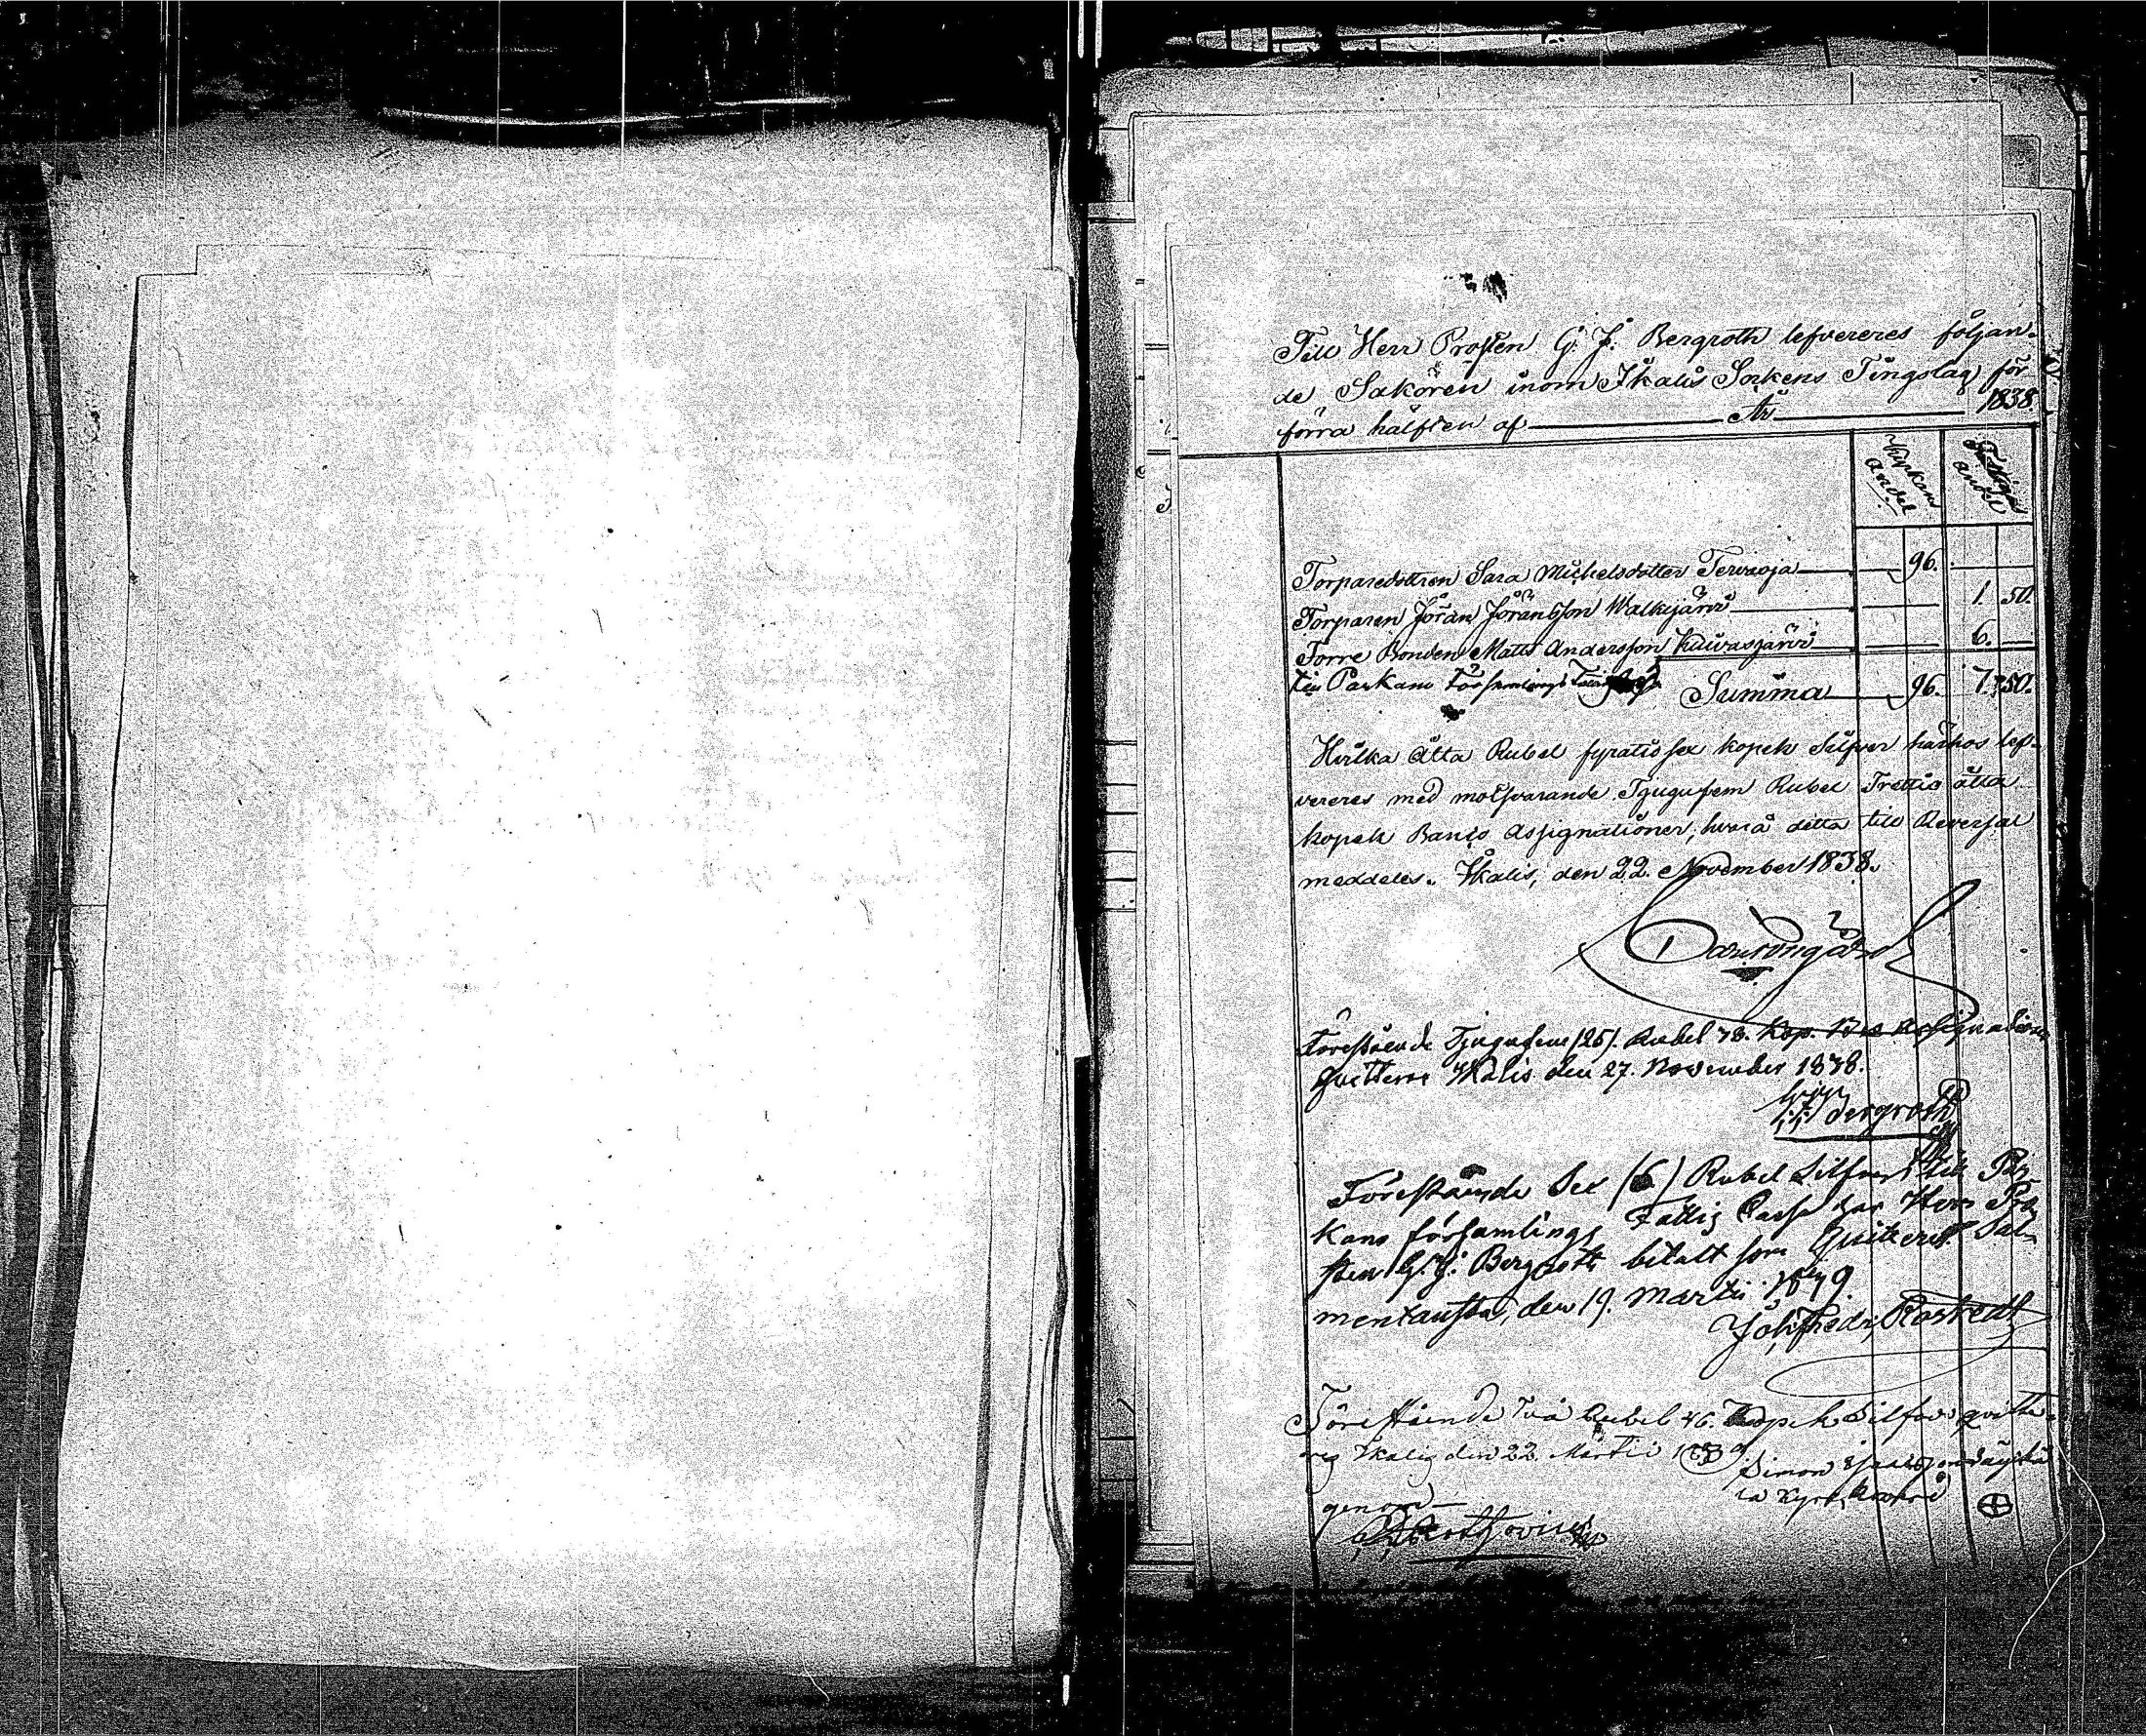 Till Herr Prosten G. J. Bergroth lefvereres följan-
de Sakören inom Ikalis Sockens Tingslag för
förra hälften af År 1838.
Kyrkans andel
Fattiges andel
Torparedottren Sara Michelsdotter Tervaoja 96.
Torparen Jöran Jöransson Walkijärvi 1. 50.
Förre Bonden Matts Andersson Kuivasjärvi 6.
till Parkano Församlings
Summa 96. 7. 50.
Hvilka Åtta Rubel fyratiosex kopek Silfver härhos lef-
vereres med motsvarande Tjugufem Rubel Trettio åtta
kopek Banco Assignationer, hvarå detta till Reversal
meddeles. Ikalis, den 22. November 1838.
Förestående Tjugufem (25). Rubel 38. Kop. Bco Assignationer
qvitteras Ikalis den 27. November 1838.
G. J. Bergroth
Förestående Sex (6) Rubel Silfver till Par-
kano församlings Fattig Cassa har Herr Pro-
sten G. J. Bergroth betalt som qvitteras. Sal-
mentausta, den 19. Martii 1839.
Joh. Fredr. Rostedt
Förestående Två Rubel 46. Kopek Silfver qvitte-
res Ikalis den 22. Martii 1839
Simon
genom